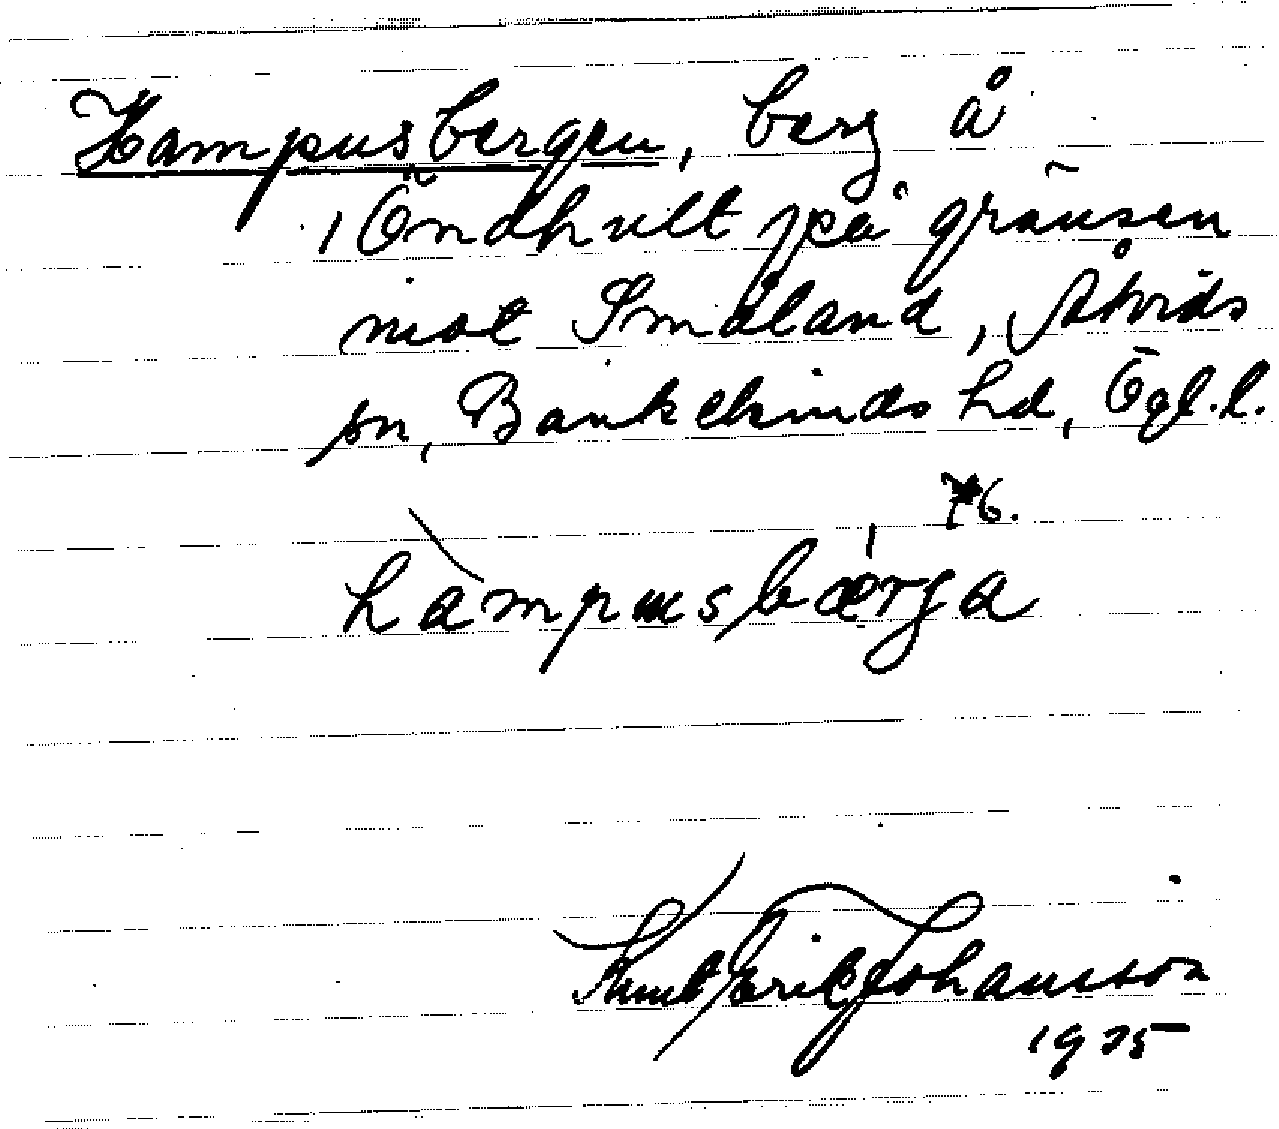 Hampusbergen, berg å
Öndhult på gränsen
mot Småland, Åtvids
sn, Bankekinds hd, Ögl. l.
76.
hàmpusbærga
Knut Erik Johansson
1925